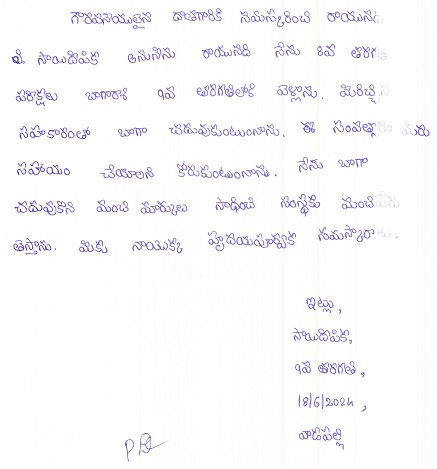 గౌరవనీయులైన దాతగారికి నమస్కరించి రాయునది
వి. సాయిదీపిక అనునేను రాయునది నేను 8వ తరగతి
పరీక్షలు బాగారాశి 9వ తరగతిలోకి వెళ్లాను. మీరిచ్చిన
సహకారంతో బాగా చదువుకుంటున్నాను. ఈ సంవత్సరం మీరు
సహాయం చేయాలని కోరుకుంటున్నాను. నేను బాగా
చదువుకొని మంచి మార్కులు సాధించి సంస్థకు మంచి పేరు
తెస్తాను. మీకు నాయొక్క హృదయపూర్వక నమస్కారాలు.
ఇట్లు,
సాయిదీపిక,
9వ తరగతి,
18/6/2024,
వాడపల్లి